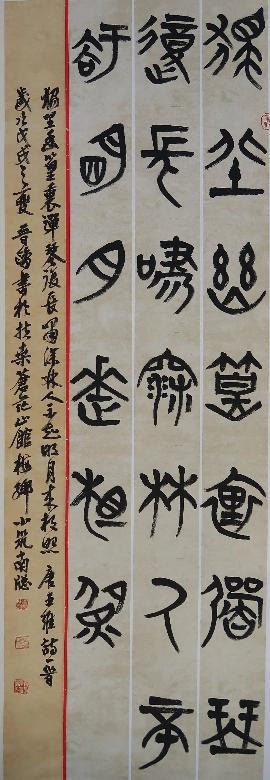 獨坐幽篁裏彈琴
復長嘯深林人不
知明月來相照
獨坐幽篁裏彈琴復長嘯深林人不知明月來相照 唐王維詩一首
歲次戊戌之夏 書於扶桑 山館 小筑南